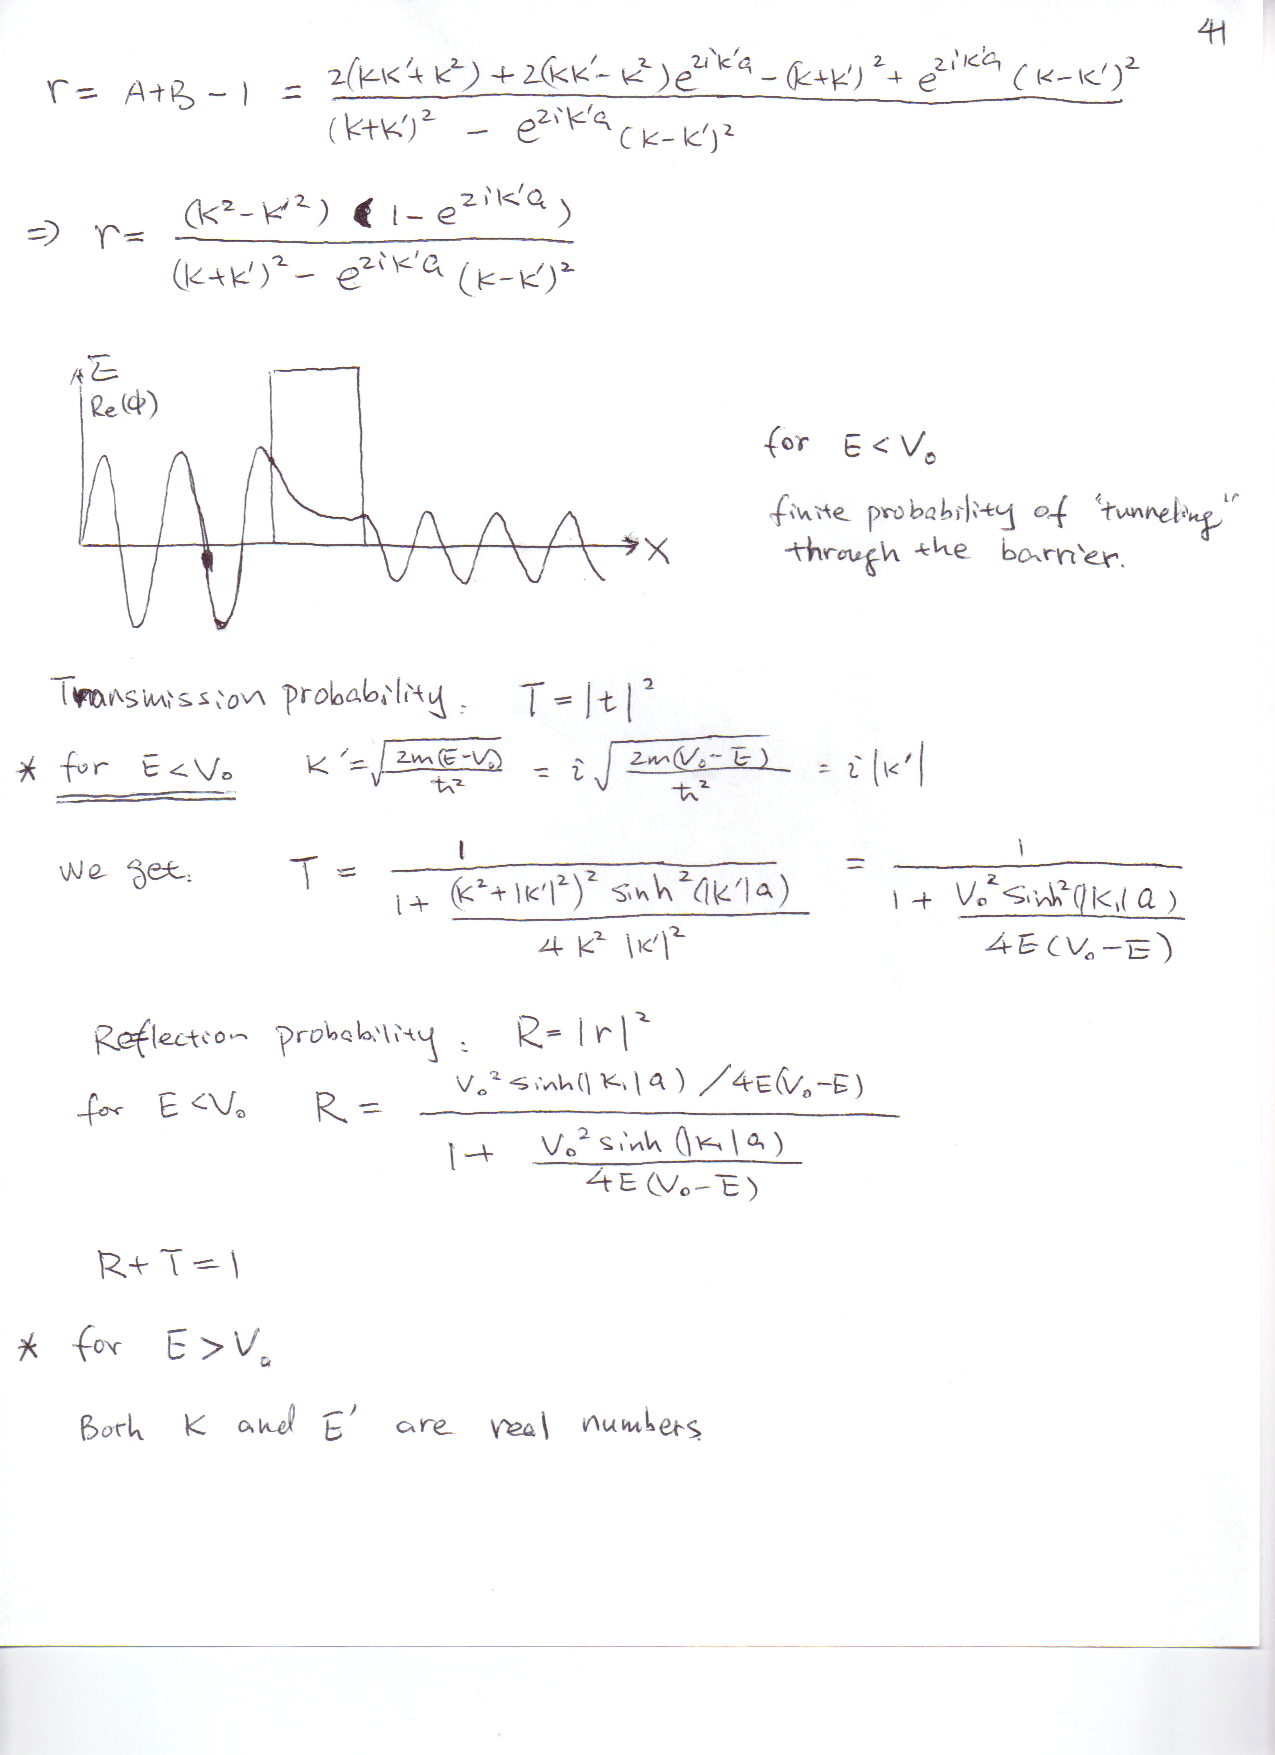 41
r = A+B-1 = \frac{2(kk'+k^2)+2(kk'-k^2)e^{2ik'a}-(k+k')^2+e^{2ik'a}(k-k')^2}{(k+k')^2-e^{2ik'a}(k-k')^2}
⇒ r = \frac{(k^2-k'^2)(1-e^{2ik'a})}{(k+k')^2-e^{2ik'a}(k-k')^2}
E
Re(ϕ)
x
for E < V₀
finite probability of "tunneling"
through the barrier.
Transmission probability: T = |t|^2
* for E < V₀ k' = \sqrt{\frac{2m(E-V₀)}{ħ^2}} = i\sqrt{\frac{2m(V₀-E)}{ħ^2}} = i|k'|
we get: T = \frac{1}{1+\frac{(k^2+|k'|^2)^2 sinh^2(|k'|a)}{4k^2|k'|^2}} = \frac{1}{1+\frac{V₀^2 sinh^2(|k₁|a)}{4E(V₀-E)}}
Reflection probability: R = |r|^2
for E < V₀ R = \frac{V₀^2 sinh(|k₁|a)/4E(V₀-E)}{1+\frac{V₀^2 sinh(|k₁|a)}{4E(V₀-E)}}
R+T=1
* for E > V₀
Both k and E' are real numbers